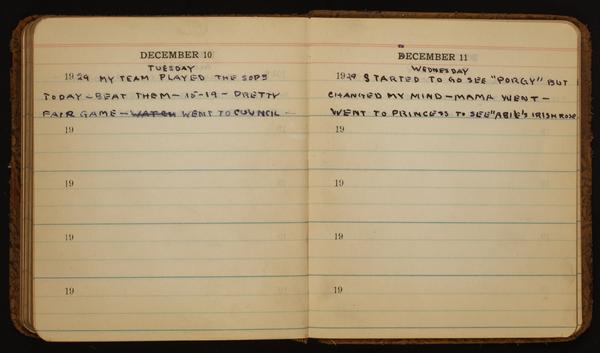 DECEMBER 10
TUESDAY
1929 MY TEAM PLAYED THE SOPS
TODAY - BEAT THEM - 15-19 - PRETTY
FAIR GAME - WATCH WENT TO COUNCIL -
19
19
19
19
DECEMBER 11
WEDNESDAY
1929 STARTED TO GO SEE "PORGY" BUT
CHANGED MY MIND - MAMA WENT -
WENT TO PRINCESS TO SEE "ABIE'S IRISH ROSE
19
19
19
19